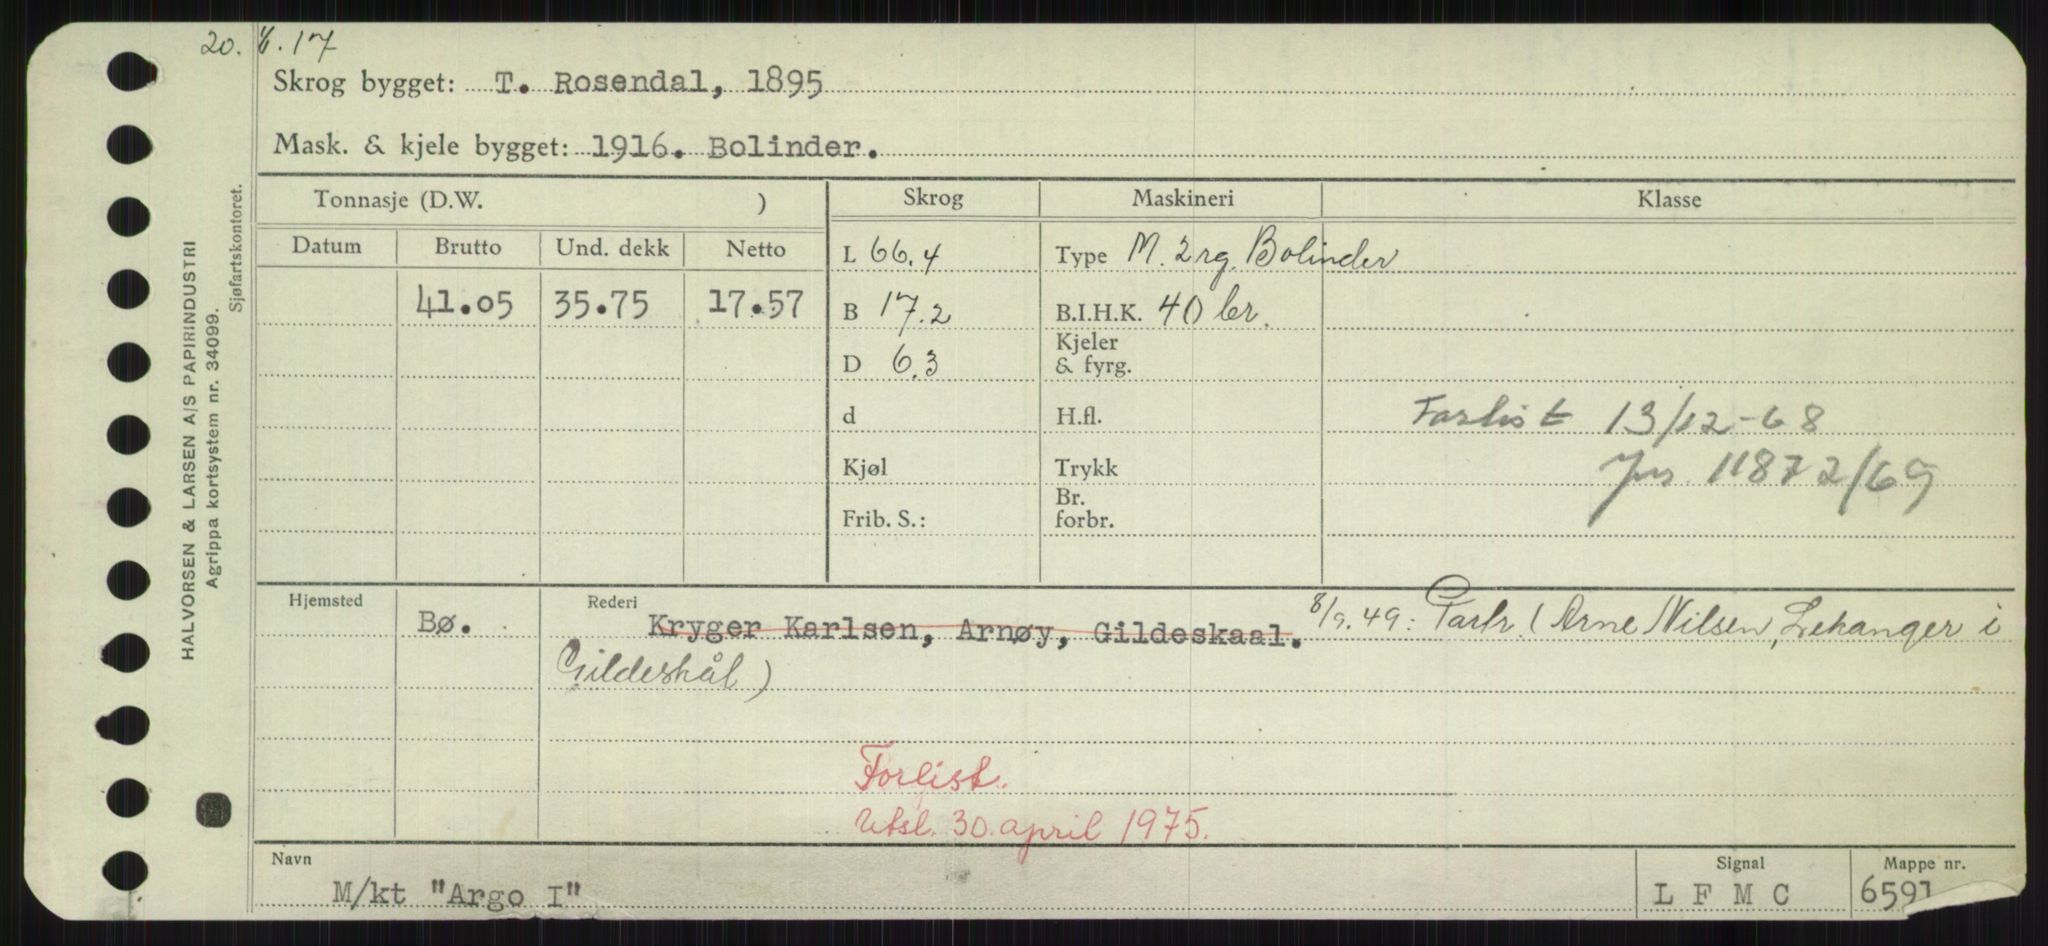 20. 6.17
Skrog bygget: T. Rosendal, 1895
Mask. & kjele bygget: 1916. Bolinder.
Tonnasje (D.W. ) Skrog Maskineri Klasse
Datum Brutto Und. dekk Netto
L 66.4 Type M. 2 rg. Bolinder
41.05 35.75 17.57 B 17.2 B.I.H.K. 40 br.
D 6.3 Kjeler & fyrg.
d H.fl. Forlist 13/12-68
Kjøl Trykk Jnr 11872/69
Frib. S.: Br. forbr.
Hjemsted Bø. Rederi Kryger Karlsen, Arnøy, Gildeskaal. 8/9.49: Partr. (Arne Nilsen, Lekanger i
Gildeskål)
Forlist.
Utsl. 30. april 1975.
Navn M/kt "Argo I" Signal L F M C Mappe nr. 6591
HALVORSEN & LARSEN A/S PAPIRINDUSTRI
Agrippa kortsystem nr. 34099.
Sjøfartskontoret.